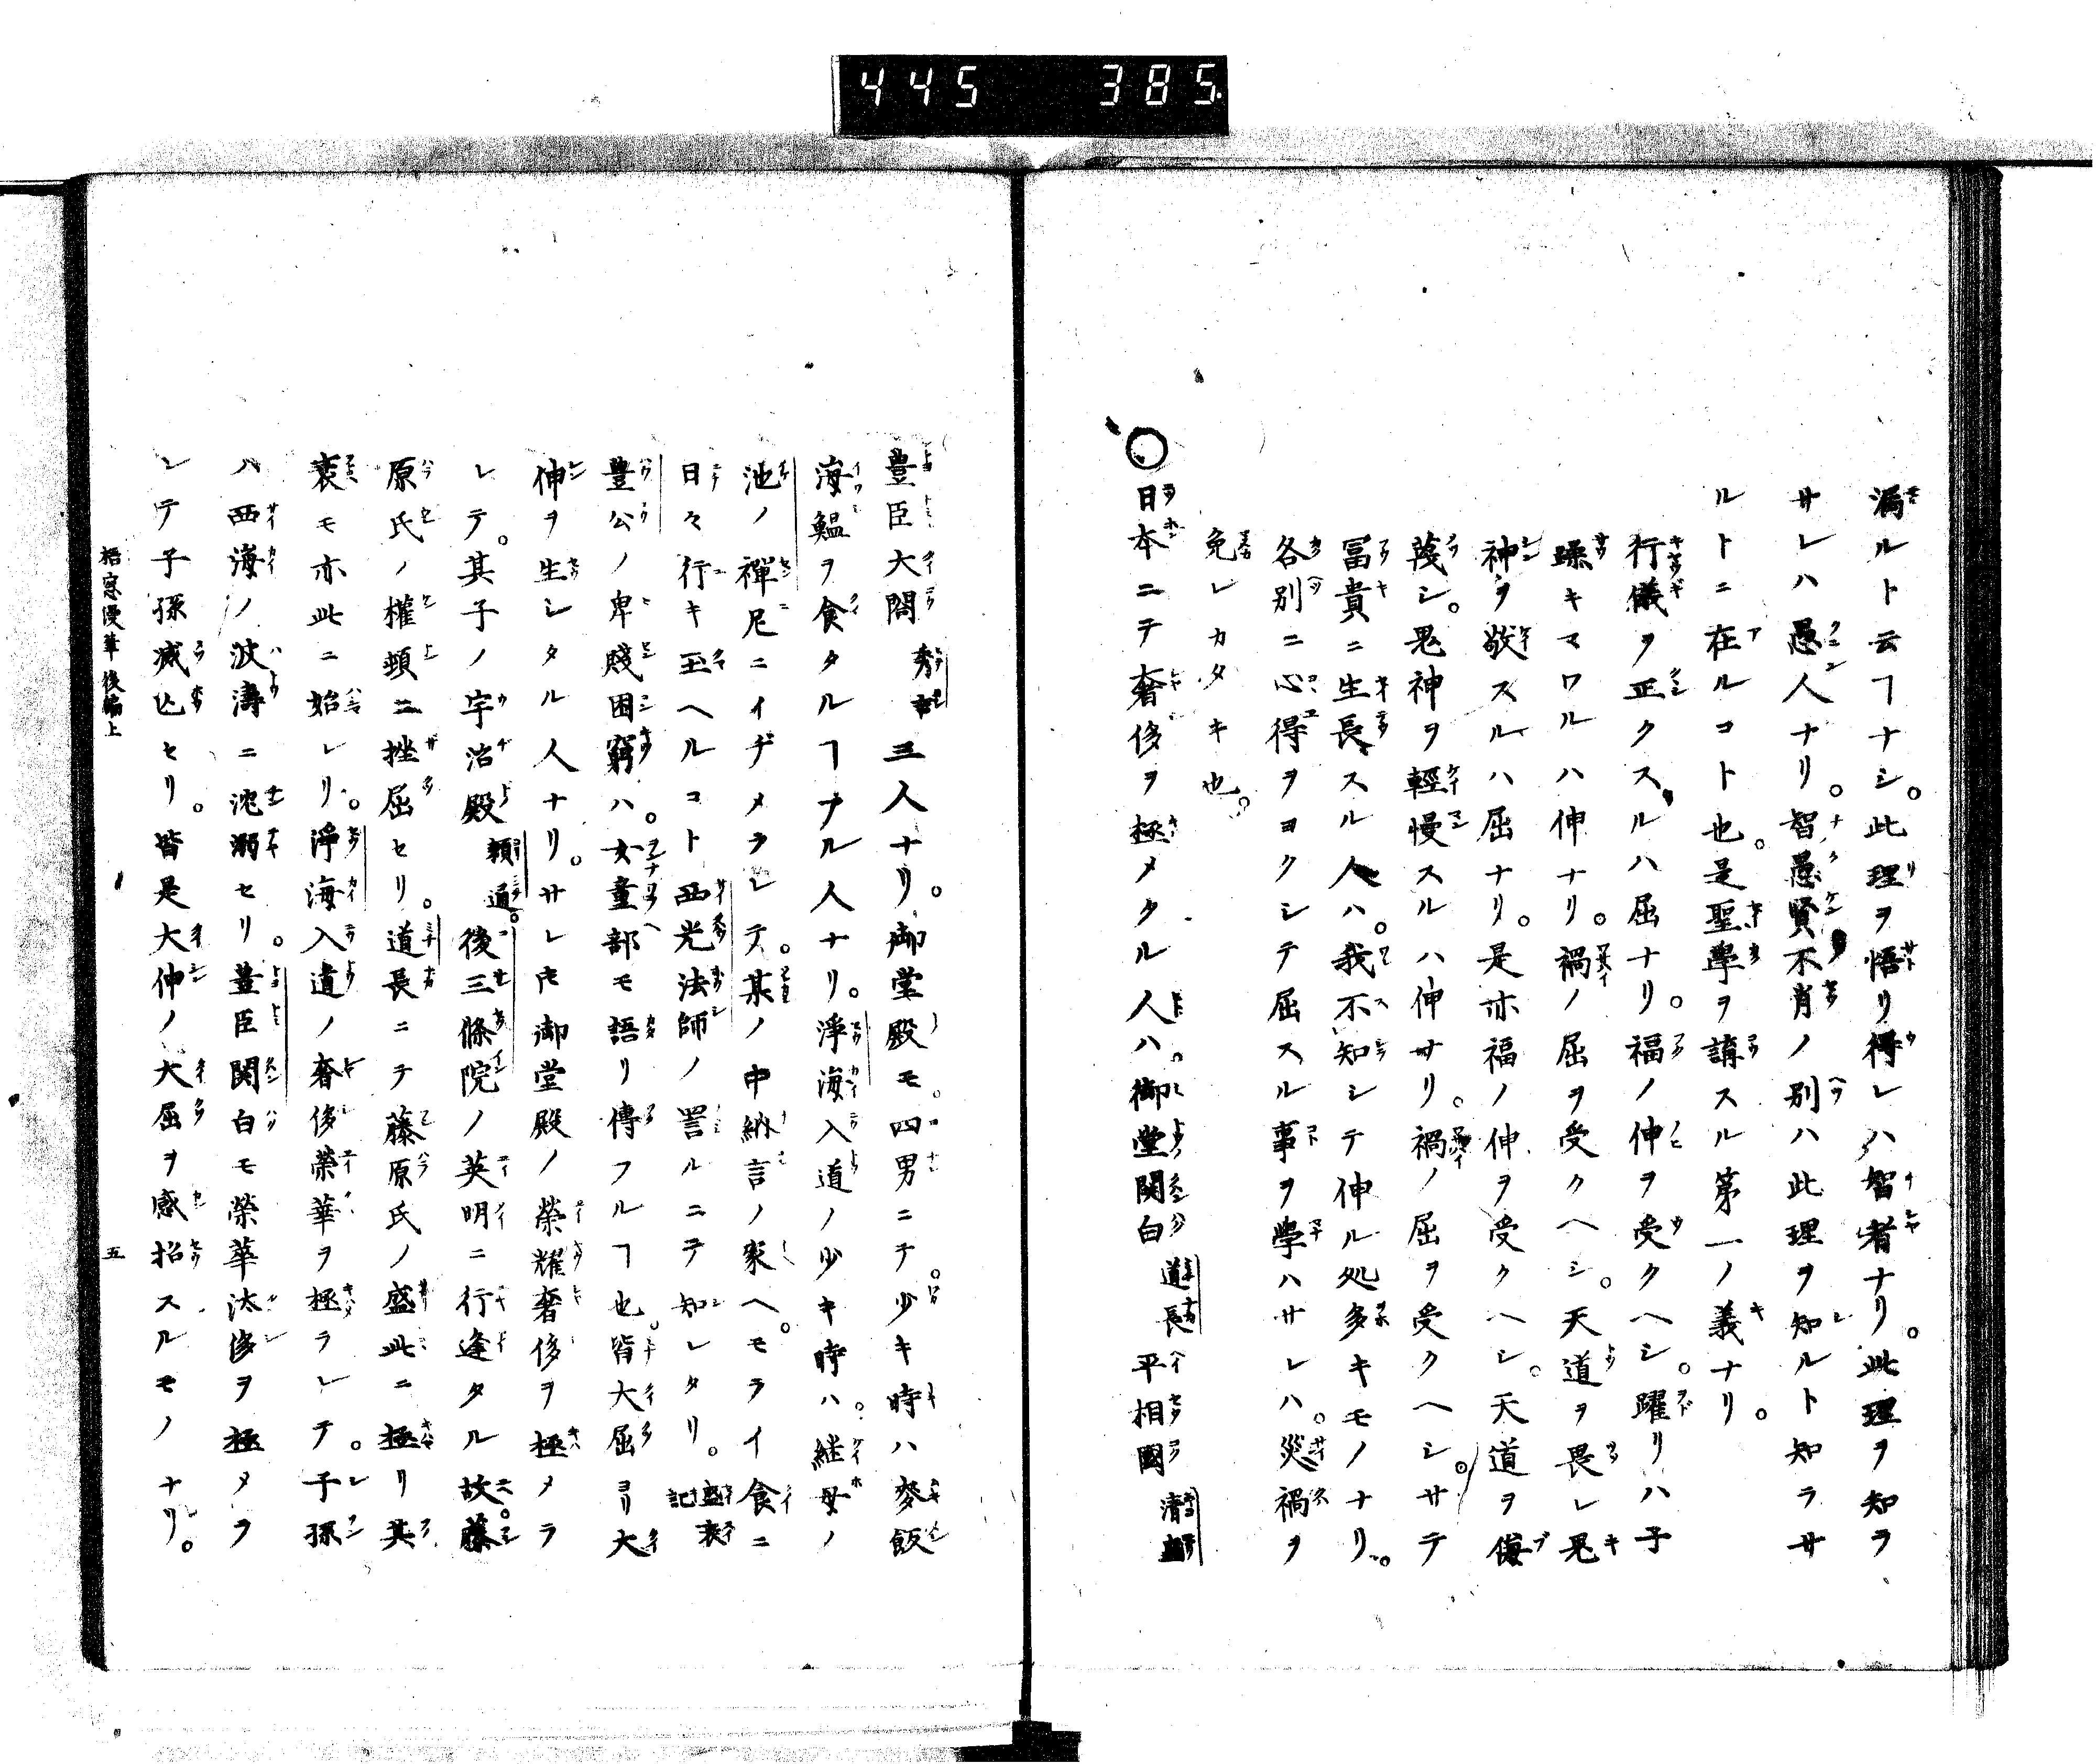 445 385
漏ルト云ヿナシ。此理ヲ悟リ得レハ智者ナリ。此理ヲ知ラ
サレハ愚人ナリ。智愚賢不肖ノ別ハ此理ヲ知ルト知ラサ
ルトニ在ルコト也。是聖學ヲ講スル第一ノ義ナリ。
行儀ヲ正クスルハ屈ナリ。福ノ伸ヲ受クヘシ。躍リハ子
躁キマワルハ伸ナリ。禍ノ屈ヲ受クヘシ。天道ヲ畏レ鬼
神ヲ敬スルハ屈ナリ。是亦福ノ伸ヲ受クヘシ。天道ヲ侮
蔑シ。鬼神ヲ輕慢スルハ伸ナリ。禍ノ屈ヲ受クヘシ。サテ
冨貴ニ生長スル人ハ。我不知シテ伸ル処多キモノナリ。
各別ニ心得ヲヨクシテ屈スル事ヲ學ハサレハ。災禍ヲ
免レカタキ也。
○日本ニテ奢侈ヲ極メタル人ハ。御堂関白道長平相國清盛
豊臣大閤秀吉三人ナリ。御堂殿モ。四男ニテ。少キ時ハ麥飯
海鰮ヲ食タルヿアル人ナリ。淨海入道ノ少キ時ハ。継母ノ
池ノ禪尼ニイヂメラレテ。某ノ中納言ノ家ヘ。モライ食ニ
日々行キ玉ヘルコト西光法師ノ詈ルニテ知レタリ。盛衰記
豊公ノ卑賤困窮ハ。女童部モ語リ傳フルヿ也。皆大屈ヨリ大
伸ヲ生シタル人ナリ。サレ𪜈御堂殿ノ榮耀奢侈ヲ極メラ
レテ。其子ノ宇治殿頼通。後三條院ノ英明ニ行逢タル故ニ。藤
原氏ノ權頓ニ挫屈セリ。道長ニテ藤原氏ノ盛此ニ極リ其
衰モ亦此ニ始レリ。淨海入道ノ奢侈榮華ヲ極ラレテ。子孫
ハ西海ノ波濤ニ沈溺セリ。豊臣関白モ榮華汰侈ヲ極メラ
レテ子孫滅亡セリ。皆是大伸ノ大屈ヲ感招スルモノナリ。
梧窓漫筆後編上 五